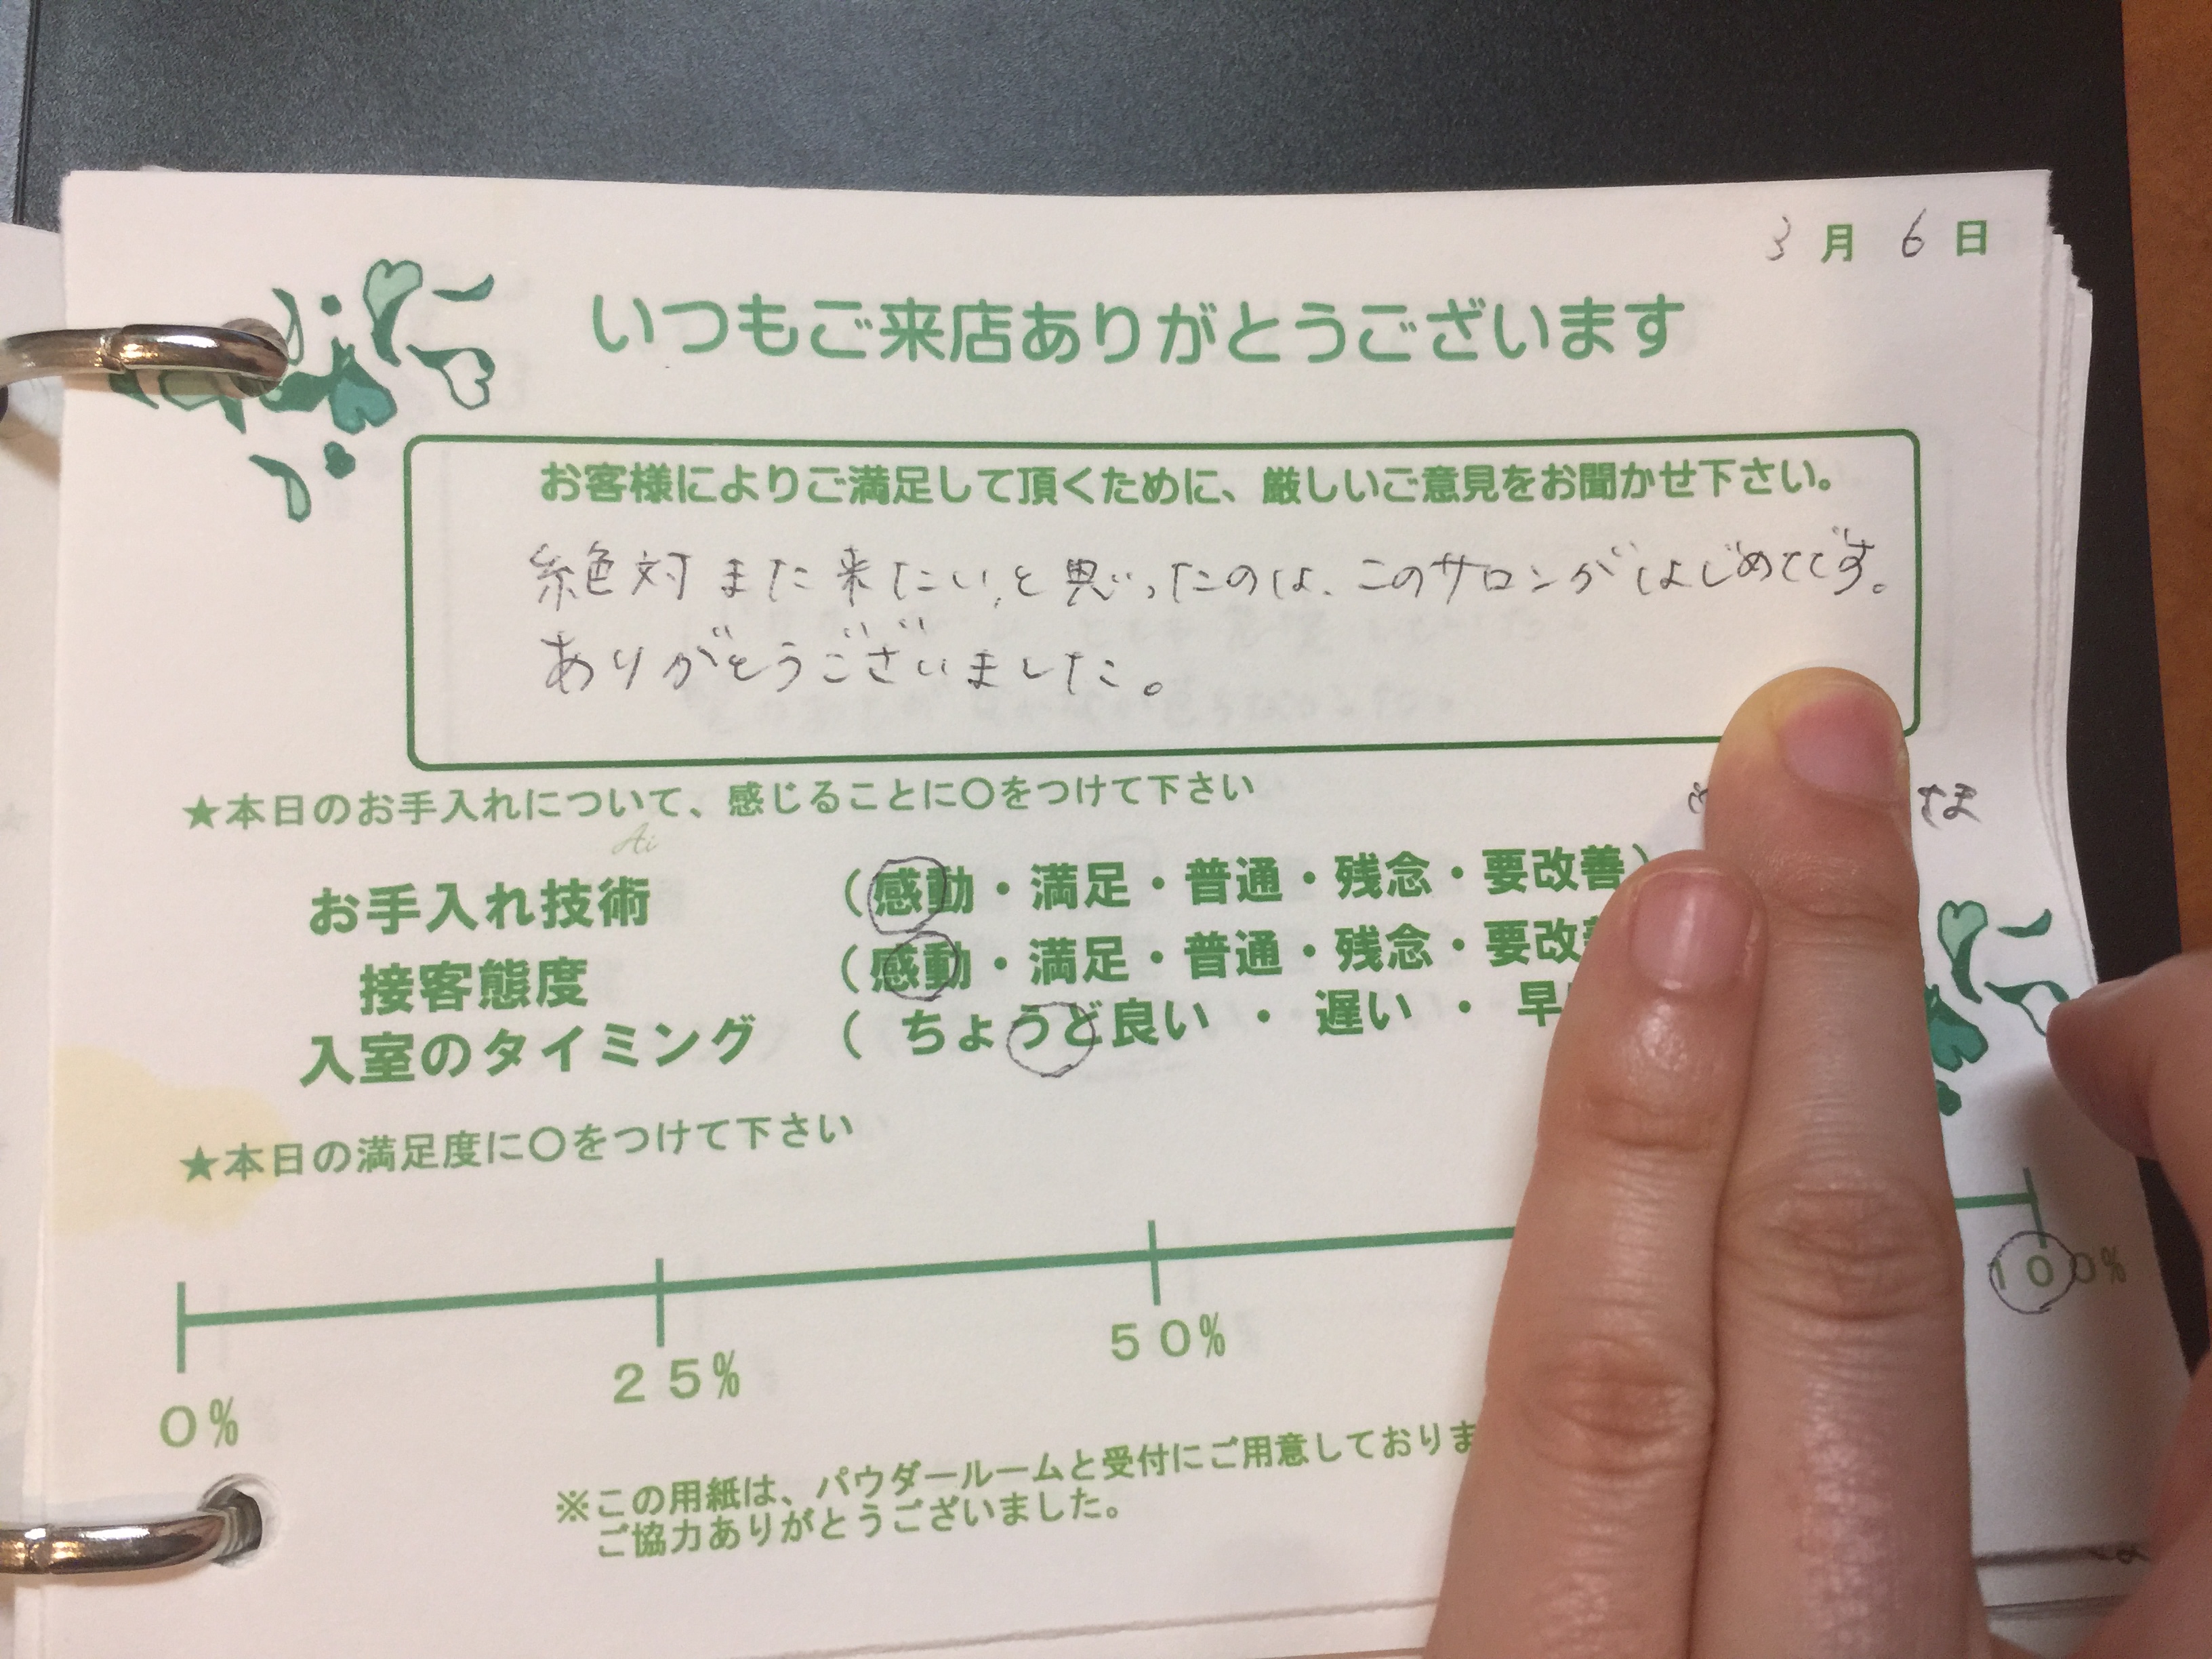 3月6日
いつもご来店ありがとうございます
お客様によりご満足して頂くために、厳しいご意見をお聞かせ下さい。
絶対また来たい、と思ったのは、このサロンがはじめてです。
ありがとうございました。
★本日のお手入れについて、感じることに〇をつけて下さい
さま
Ai
お手入れ技術 （感動・満足・普通・残念・要改善）
接客態度 （感動・満足・普通・残念・要改
入室のタイミング （ ちょうど良い ・ 遅い ・ 早
★本日の満足度に〇をつけて下さい
0% 25% 50% 100%
※この用紙は、パウダールームと受付にご用意しておりま
ご協力ありがとうございました。